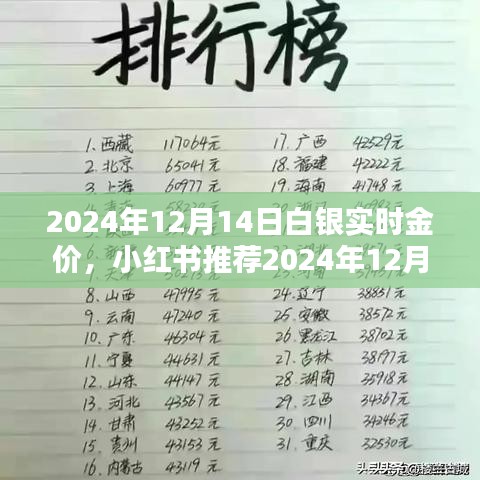 排行榜
1. 西藏 117064元
2. 北京 65041元
3. 上海 60977元
17. 广西 42529元
18. 福建 42222元
19. 海南 41748元
2024年12月14日白银实时金
价，小红书推荐2024年12月
8. 山西 47995元
9. 云南 47240元
10. 广东 46304元
11. 宁夏 44631元
12. 山东 44147元
13. 河北 43567元
14. 甘肃 43252元
15. 贵州 43153元
16. 内蒙古 43119元
24. 辽宁 38831元
25. 安徽 38572元
26. 黑龙江 38702元
27. 吉林 38197元
28. 湖南 35918元
29. 江西 34367元
30. 四川 34246元
31. 重庆 32530元